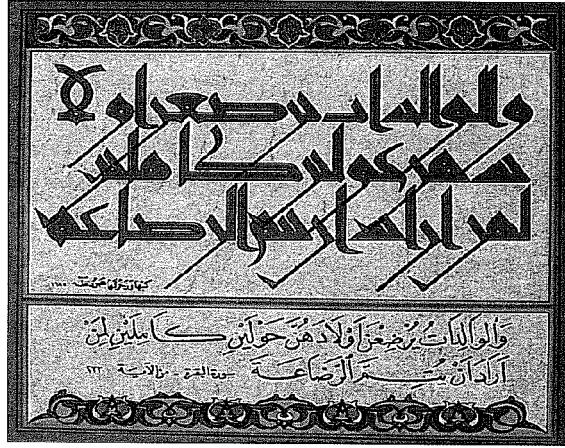 والوالدات يرضعن اولا
دهن حولين كاملين
لمن اراد ان يتم الرضاعة
وَالْوَالِدَاتُ يُرْضِعْنَ أَوْلَادَهُنَّ حَوْلَيْنِ كَامِلَيْنِ لِمَنْ
أَرَادَ أَنْ يُتِمَّ الرَّضَاعَةَ سورة البقرة - من الآية